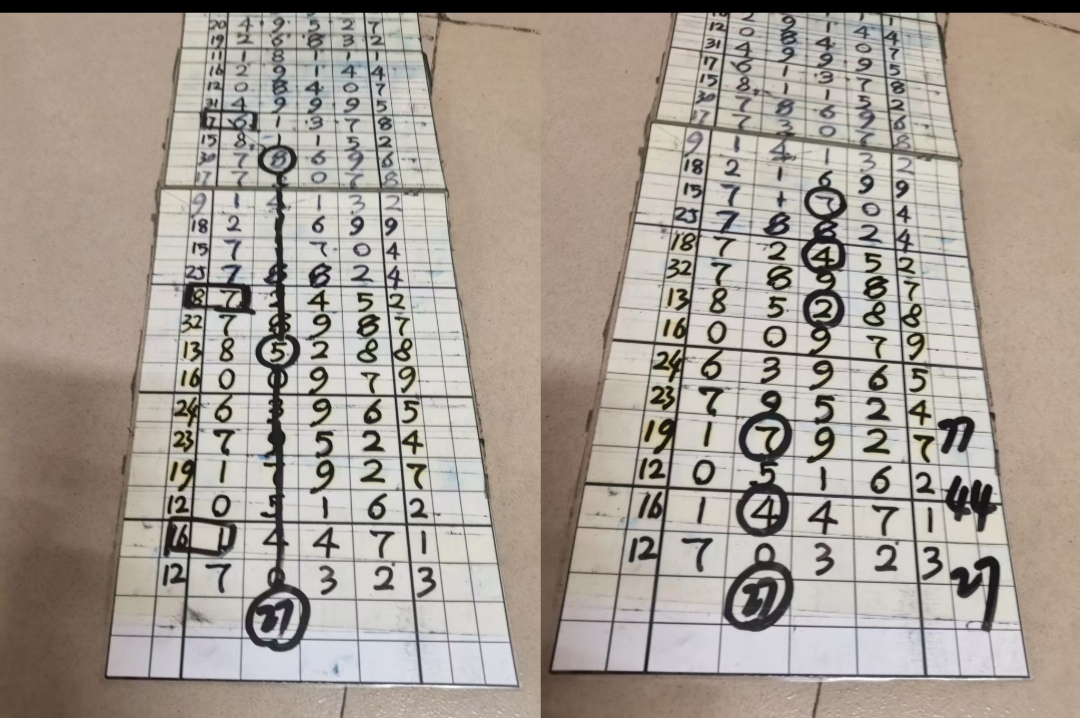 20 4 9 5 2 7
19 2 6 8 3 2
11 1 8 1 1 1
16 2 9 1 4 4
12 0 8 4 0 7
31 4 9 9 9 5
17 6 1 3 7 8
15 8 1 1 5 2
30 7 8 6 9 6
17 7 0 7 8
9 1 4 1 3 2
18 2 1 6 9 9
15 7 1 7 0 4
25 7 8 8 2 4
18 7 2 4 5 2
32 7 8 9 8 7
13 8 5 2 8 8
16 0 0 9 7 9
24 6 3 9 6 5
23 7 9 5 2 4
19 1 7 9 2 7
12 0 5 1 6 2
16 1 4 4 7 1
12 7 0 3 2 3
27
12 0 8 4 0 7
31 4 9 9 9 5
17 6 1 3 7 8
15 8 1 1 5 2
30 7 8 6 9 6
17 7 3 0 7 8
9 1 4 1 3 2
18 2 1 6 9 9
15 7 1 7 0 4
25 7 8 8 2 4
18 7 2 4 5 2
32 7 8 9 8 7
13 8 5 2 8 8
16 0 0 9 7 9
24 6 3 9 6 5
23 7 9 5 2 4
19 1 7 9 2 7 77
12 0 5 1 6 2
16 1 4 4 7 1 44
12 7 0 3 2 3
27 27